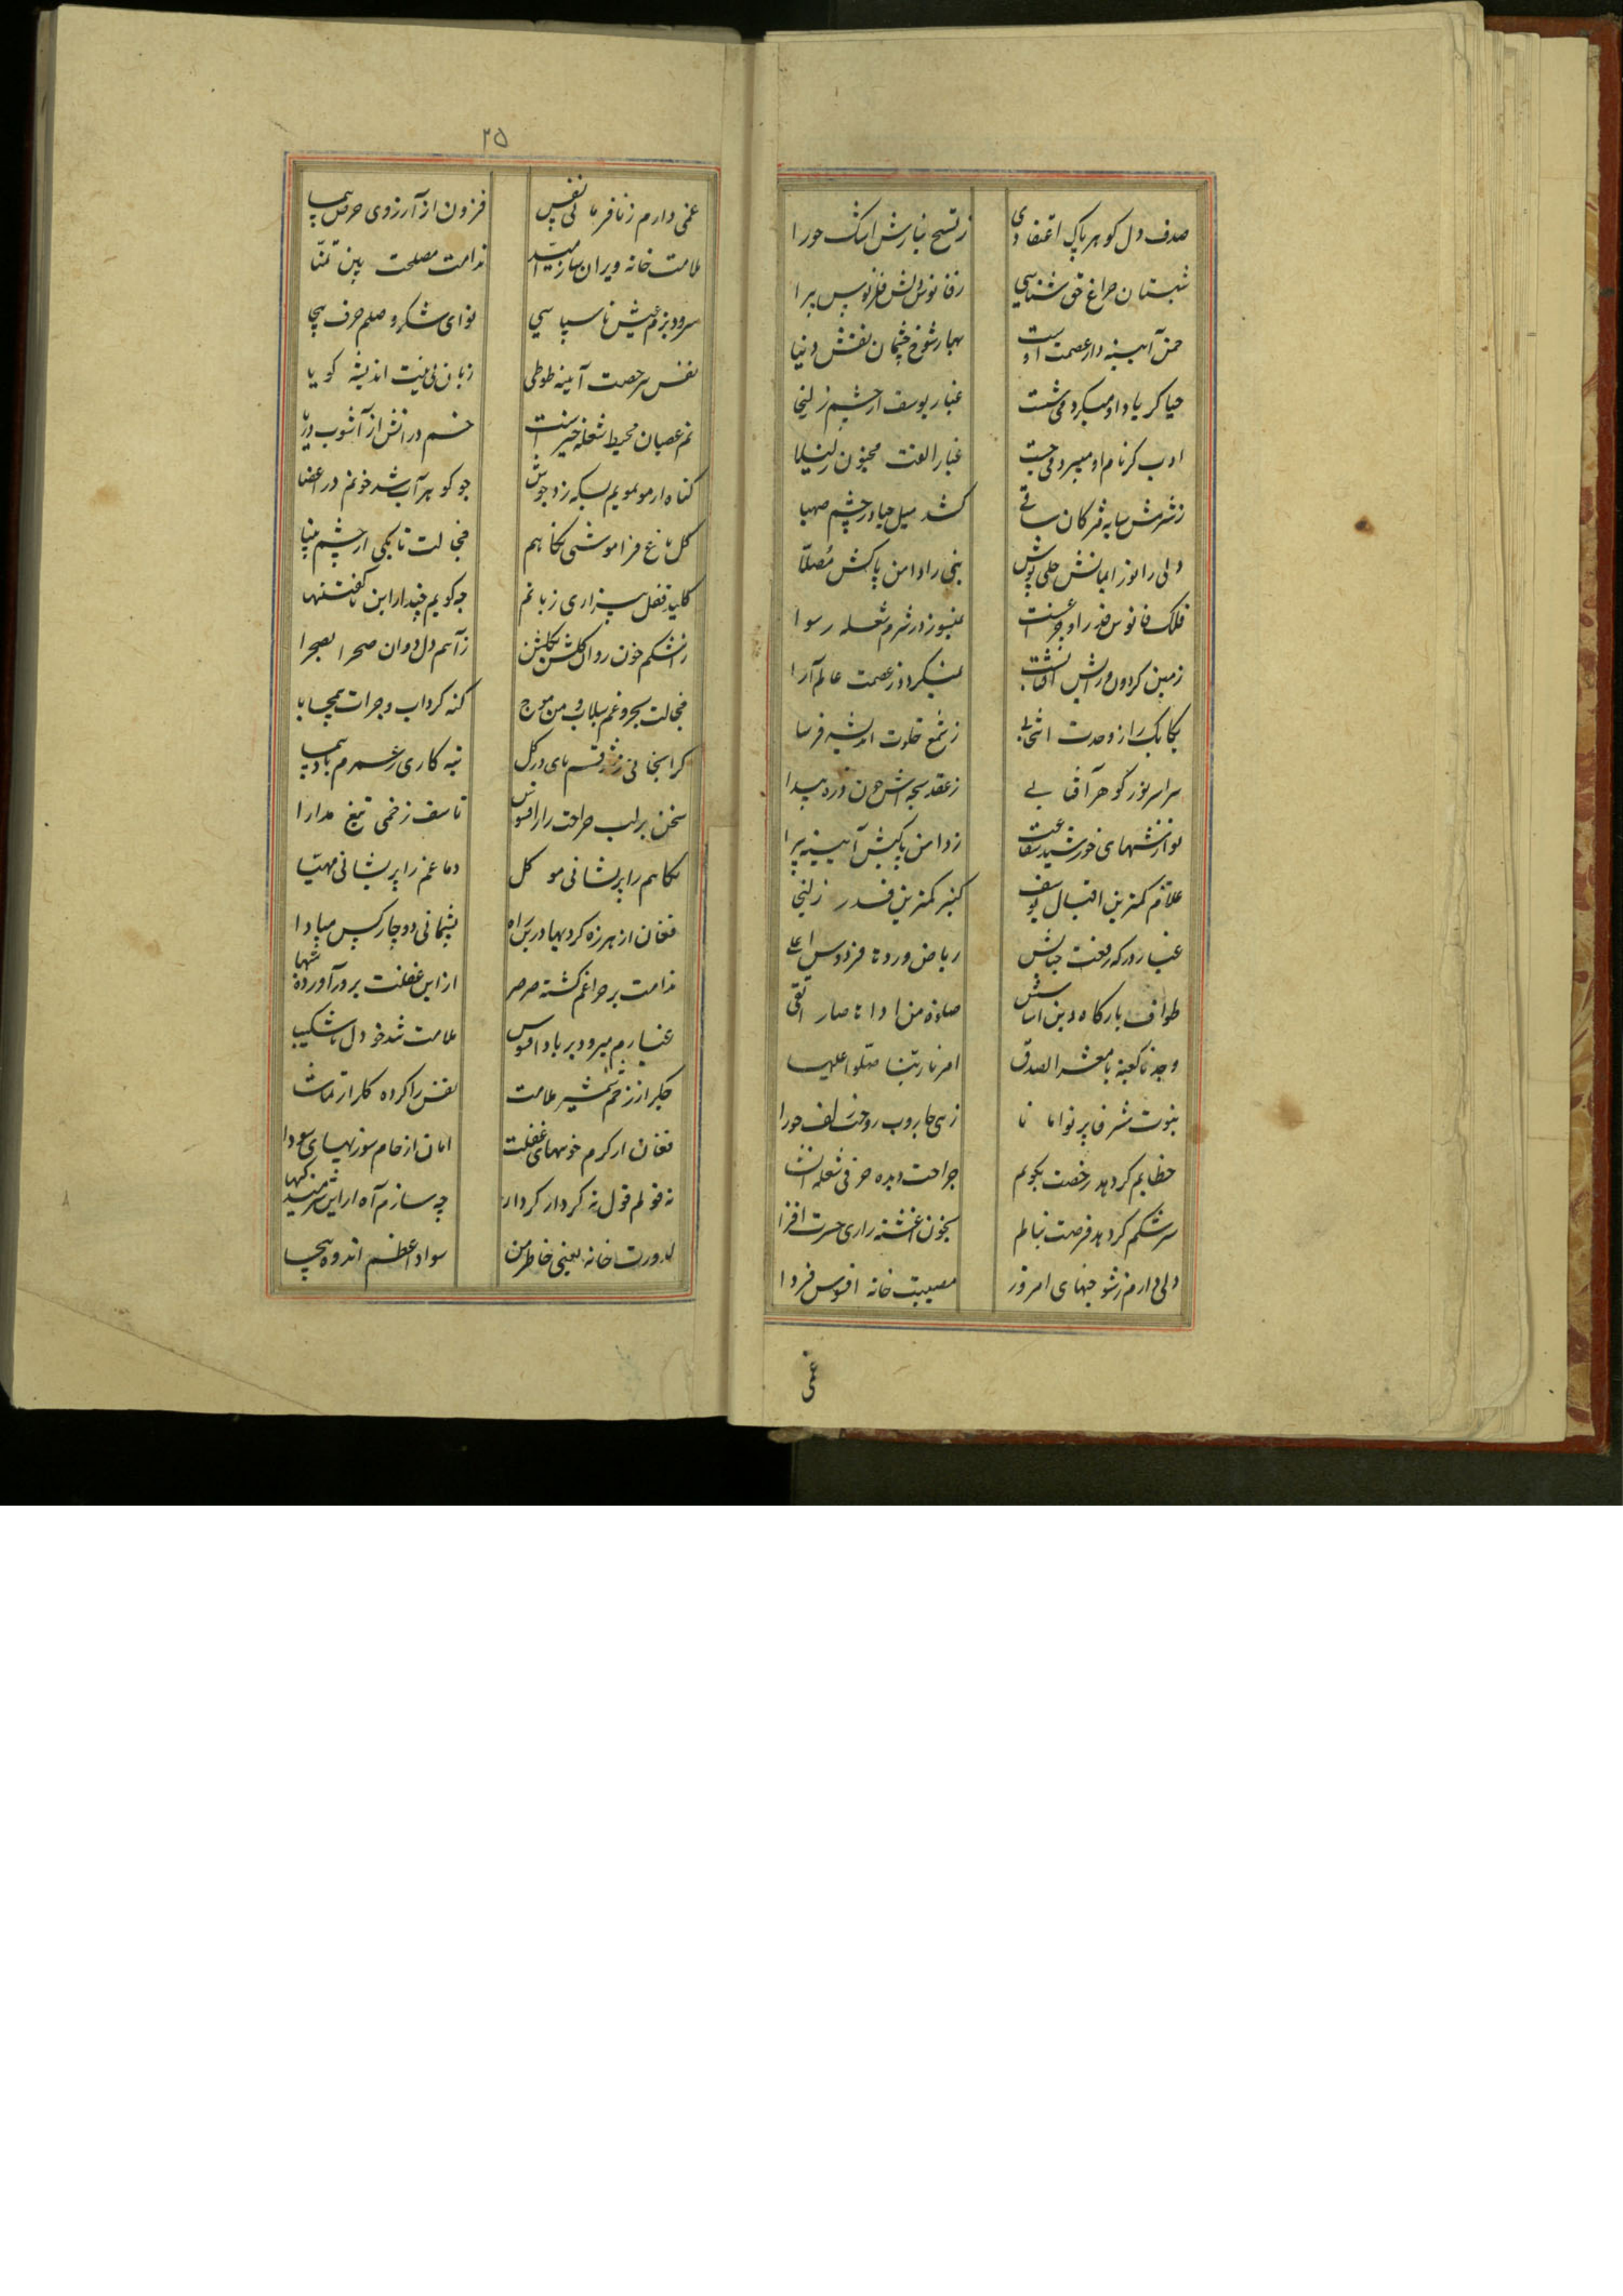 صدف دل کوهر پاک اعتقادی زتسبیح نیازش اشک حورا
شبستان چراغ حق شناسی
چمن آیینه دار عصمت اوست بهار شوخ چشمان نقش دنیا
حیا کر یاد او میکرد می شست غبار یوسف از چشم زلیخا
ادب کر نام او میبرد می جست غبار الفت مجنون ز لیلا
زشرمش سایه مژکان ساقی کشد میل حیا در چشم صهبا
ولی را نور ایمانش حلی پوش نبی را دامن پاکش مصلا
فلک فانوس قدر او هنوز در شرم شعله رسوا
زمین کردون عصمت عالم آرا
زشمع خلوت اندیشه فرسا
سراسر نور کوهر آفتابی زعقد سبحه اش چون ذره پیدا
نوازشهای خورشید زدامن پاکیش آیینه پیرا
غلام کمترین اقبال یوسف کنیز کمترین قدر زلیخا
غبار درکه رفعت جنابش ریاض ورد نا فردوس اعلی
طواف بارکاه دین اساسش صلوة من ادا نا صار اتقی
وجدنا کعبة یا معشر الصدق امرنا ربنا صلوا علیها
زهی جاروب روضت زلف حورا
خطابم کر دهد رخصت بکویم جراحت دیده حرفی شعله انشا
سرشکم کر دهد فرصت بنالم بخون اغشته زاری حسرت افزا
دلی دارم زشوخیهای امروز مصیبت خانه افسوس فردا
غمی
۲۵
غمی دارم زنافرمانی نفس فزون از آرزوی حرص پیما
ملامت خانه ویران ساز امید ندامت مصلحت بین تمنا
سرود بزم عیش ناسپاسی نوای شکر وصلم حرف بیجا
نفس بیرخصت آیینه طوطی زبان بی نیت اندیشه کویا
نم عصیان محیط شعله خیز است خسم در آتش از آشوب دریا
کناه از مو بمویم بسکه زد جوش چو کوهر آب شد خونم در اعضا
کل باغ فراموشی نکاهم خجالت تا بکی از چشم بینا
کلید قفل بیزاری زبانم چه کویم چند از این ناکفتنیها
زاشکم خون روان کلشن بکلشن زآهم دل دوان صحرا بصحرا
خجالت بحر و غم سیلاب و من موج کنه کرداب و جرات بیمحابا
کرانجانی پای در کل تبه کاری زعمرم باد پیما
سخن بر لب جراحت زار افسوس تاسف زخمی تیغ مدارا
نکاهم را پریشانی موکل دماغم را پریشانی مهیا
فغان از هرزه کردیها درین راه پشیمانی دوچار کس مبادا
ندامت بر چراغم کشته صرصر از این غفلت برور آورده شبها
غبارم میرود بر باد افسوس ملامت شد خو دل ناشکیبا
جکر از زخم شمشیر ملامت نفس را کرده کلزار تماشا
فغان از کرم خونیهای غفلت امان از خام سوزیهای سودا
نه قولم قول نه کردار کردار چه سازم آه از این شرمندکیها
کدورت خانه یعنی خاطر من سواد اعظم اندوه بیجا